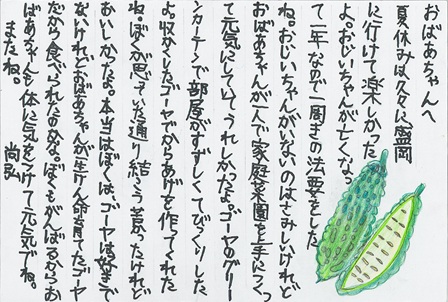 おばあちゃんへ
夏休みは久々に盛岡
に行けて楽しかった
よ。おじいちゃんが亡くなっ
て一年なので一周きの法要をした
ね。おじいちゃんがいないのはさみしいけれど
おばあちゃんが一人で家庭菜園を上手につくっ
て元気にしていてうれしかったよ。ゴーヤのグリー
ンカーテンで部屋がすずしくてびっくりした
よ。収かくしたゴーヤでからあげを作ってくれた
ね。ぼくが思っていた通り結こう苦かったけれど
おいしかったよ。本当はぼくは、ゴーヤは好きで
ないけれどおばあちゃんが一生けん命育てたゴーヤ
だから食べられたのかな。ぼくもがんばるからお
ばあちゃんも体に気をつけて元気でね。
またね。 尚弘